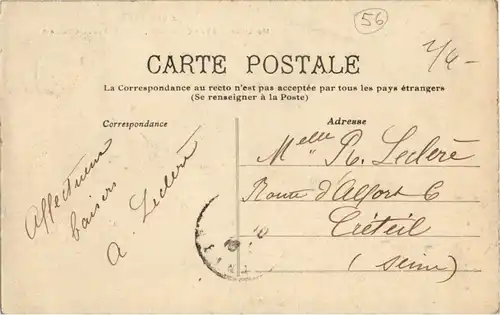 56
CARTE POSTALE
La Correspondance au recto n'est pas acceptée par tous les pays étrangers
(Se renseigner à la Poste)
Correspondance
Adresse
Affectueux
baisers
A. Leclerè
Melle R. Leclerè
Route d'Alfort 6
Créteil
(Seine)